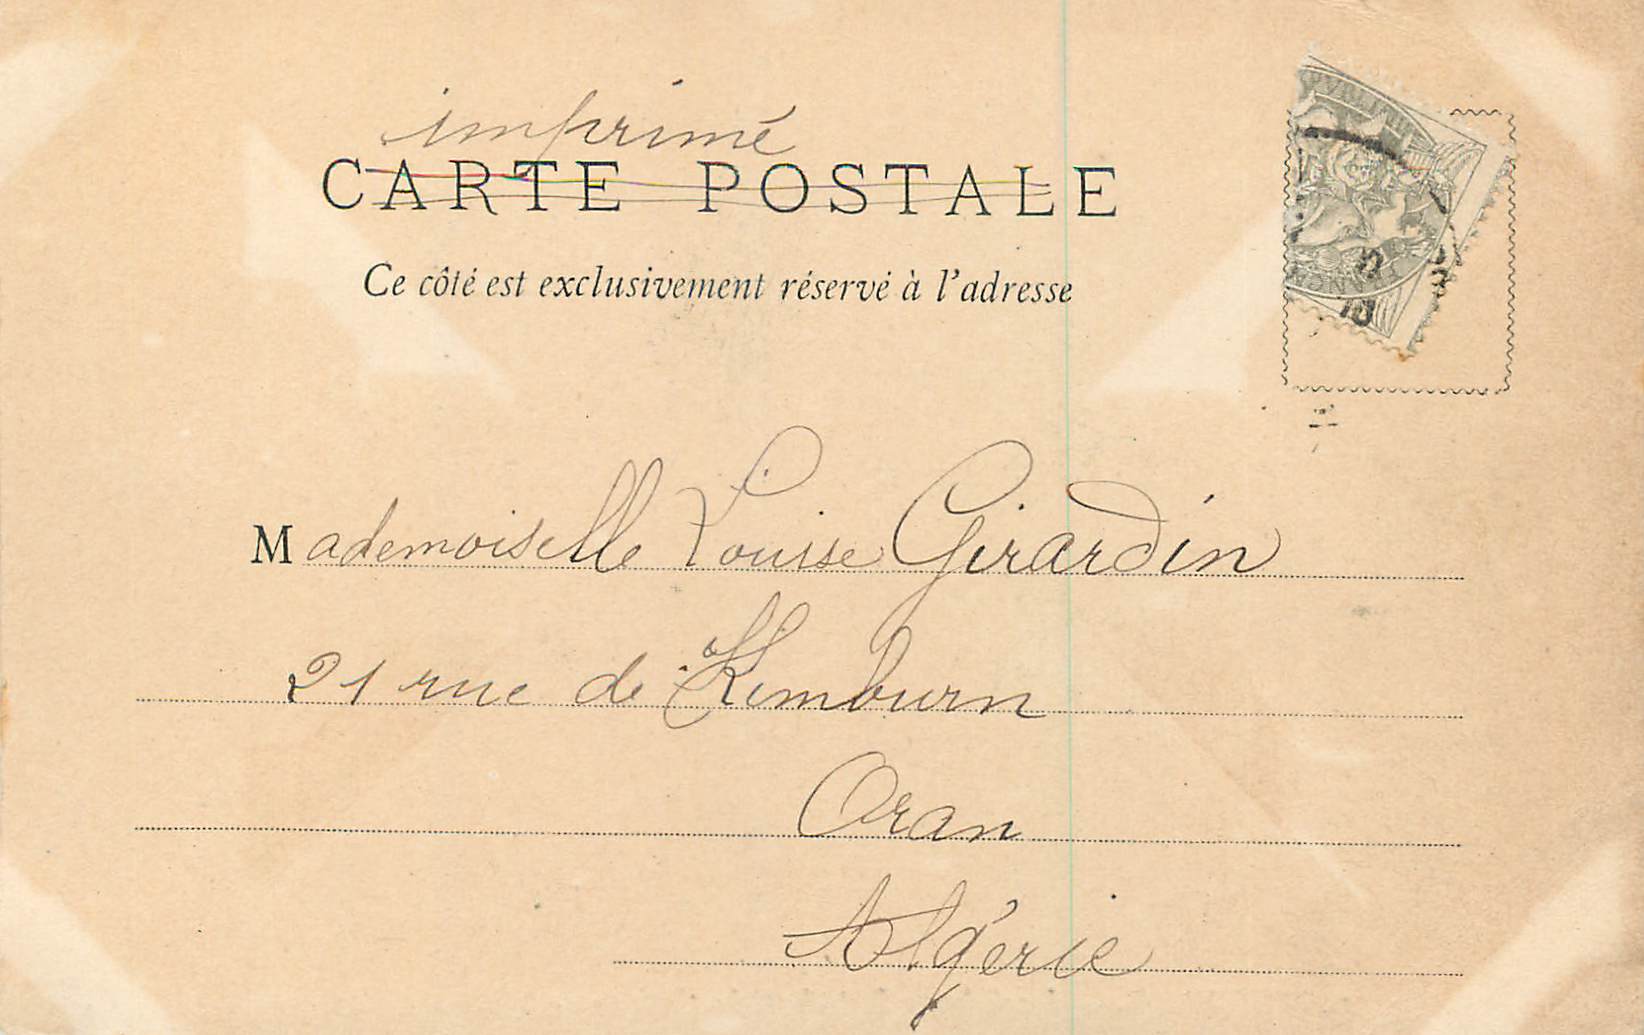 imprimé
CARTE POSTALE
Ce côté est exclusivement réservé à l'adresse
Mademoiselle Louise Girardin
21 rue de Kimburn
Oran
Algérie